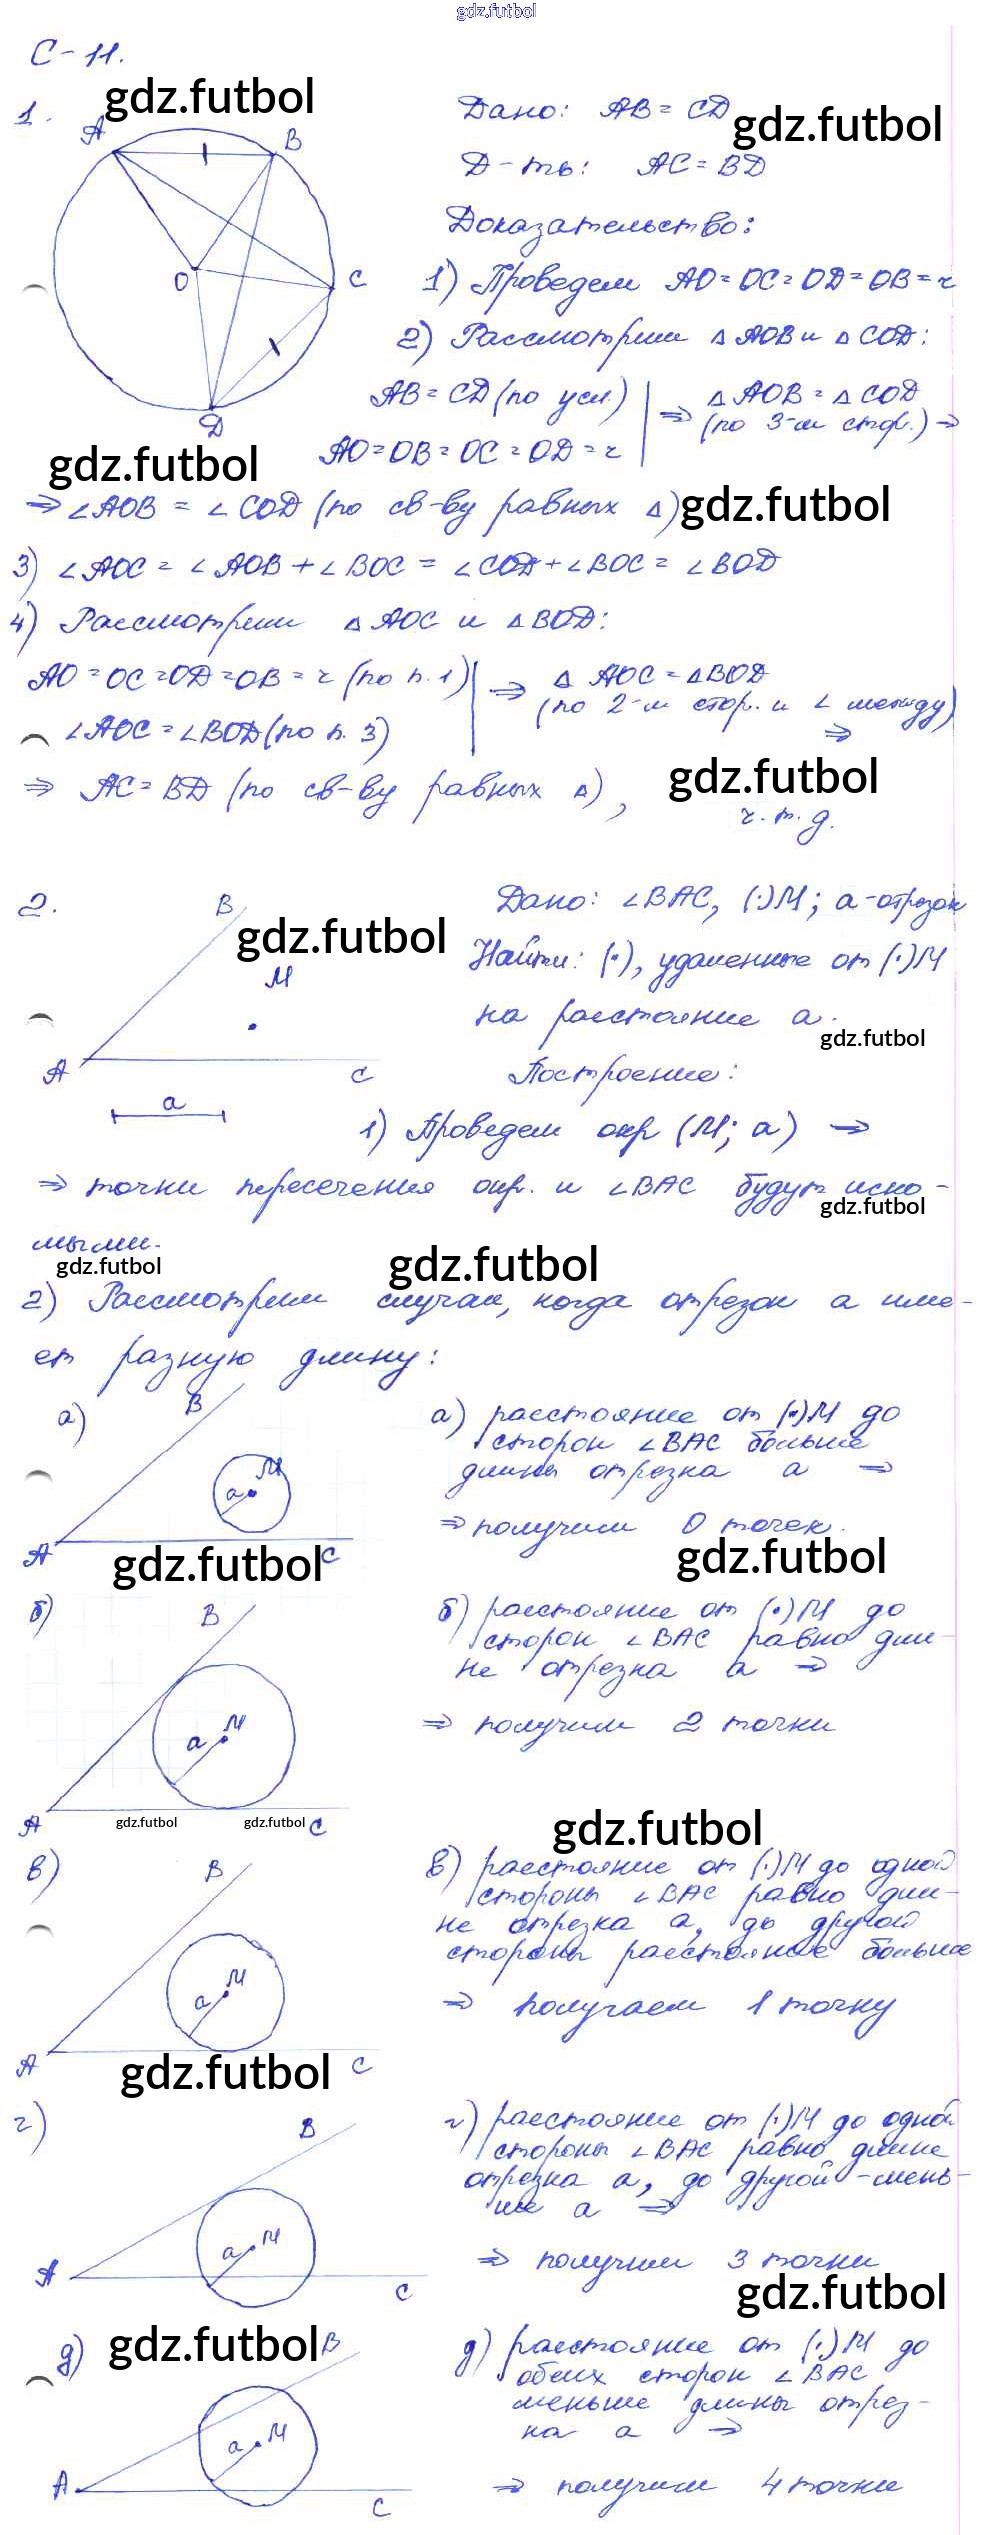 gdz.futbol
С-11.
gdz.futbol
1.
A
B
O
C
D
Дано: AB = CD
gdz.futbol
Д-ть: AC = BD
Доказательство:
1) Проведем AO = OC = OD = OB = r
2) Рассмотрим △ AOB и △ COD:
AB = CD (по усл.)
AO = OB = OC = OD = r
⇒ △ AOB = △ COD
(по 3-м стор.) ⇒
gdz.futbol
⇒ ∠AOB = ∠ COD (по св-ву равных △)
gdz.futbol
3) ∠AOC = ∠AOB + ∠BOC = ∠COD + ∠BOC = ∠BOD
4) Рассмотрим △ AOC и △ BOD:
AO = OC = OD = OB = r (по п. 1)
∠AOC = ∠BOD (по п. 3)
⇒ △ AOC = △BOD
(по 2-м стор. и ∠ между)
⇒
⇒ AC = BD (по св-ву равных △),
gdz.futbol
ч. т. д.
2.
B
gdz.futbol
M
A
C
a
Дано: ∠BAC, (·)M; a-отрезок
Найти: (·), удаленные от (·)M
на расстояние a.
gdz.futbol
Построение:
1) Проведем окр (M; a) ⇒
⇒ точки пересечения окр. и ∠BAC будут иско-
gdz.futbol
мыми.
gdz.futbol
gdz.futbol
2) Рассмотрим случаи, когда отрезок a име-
ет разную длину:
а)
B
M
a
A
C
gdz.futbol
а) расстояние от (·)M до
сторон ∠BAC больше
длины отрезка a ⇒
⇒ получим 0 точек.
gdz.futbol
б)
B
M
a
A
C
gdz.futbol
gdz.futbol
б) расстояние от (·)M до
сторон ∠BAC равно дли-
не отрезка a ⇒
⇒ получим 2 точки
gdz.futbol
в)
B
M
a
A
C
gdz.futbol
в) расстояние от (·)M до одной
стороны ∠BAC равно дли-
не отрезка a, до другой
стороны расстояние больше
⇒ получаем 1 точку
г)
B
M
a
A
C
г) расстояние от (·)M до одной
стороны ∠BAC равно длине
отрезка a, до другой - мень-
ше a ⇒
⇒ получим 3 точки
gdz.futbol
д)
gdz.futbol
B
M
a
A
C
д) расстояние от (·)M до
обеих сторон ∠BAC
меньше длины отрез-
ка a ⇒
⇒ получим 4 точки